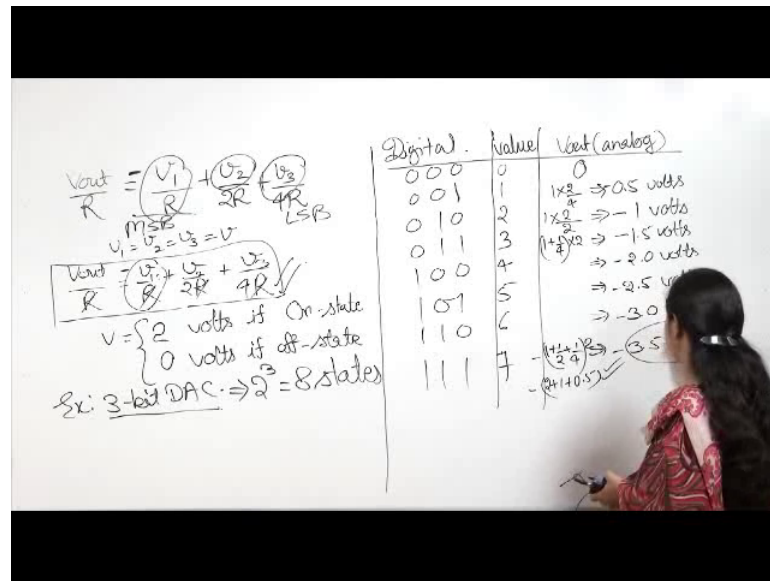 Vout/R = -V1/R + V2/2R + V3/4R
MSB LSB
V1 = V2 = V3 = V
Vout/R = V1/R + V2/2R + V3/4R ✓
V = { 2 volts if On-state
0 volts if off-state
Ex: 3-bit DAC. ⇒ 2^3 = 8 states
Digital. Value Vout (analog)
000 0 0
001 1 1×2/4 ⇒ 0.5 volts
010 2 1×2/2 ⇒ -1 volts
011 3 (1+1/4)×2 ⇒ -1.5 volts
100 4 ⇒ -2.0 volts
101 5 ⇒ -2.5
110 6 ⇒ -3.0
111 7 -(1+1/2+1/4)2 ⇒ -3.5
-(2+1+0.5) ✓